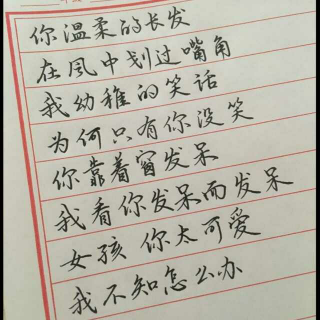 你温柔的长发
在風中划过嘴角
我幼稚的笑话
为何只有你没笑
你靠着窗发呆
我看你发呆而发呆
女孩 你太可爱
我不知怎么办